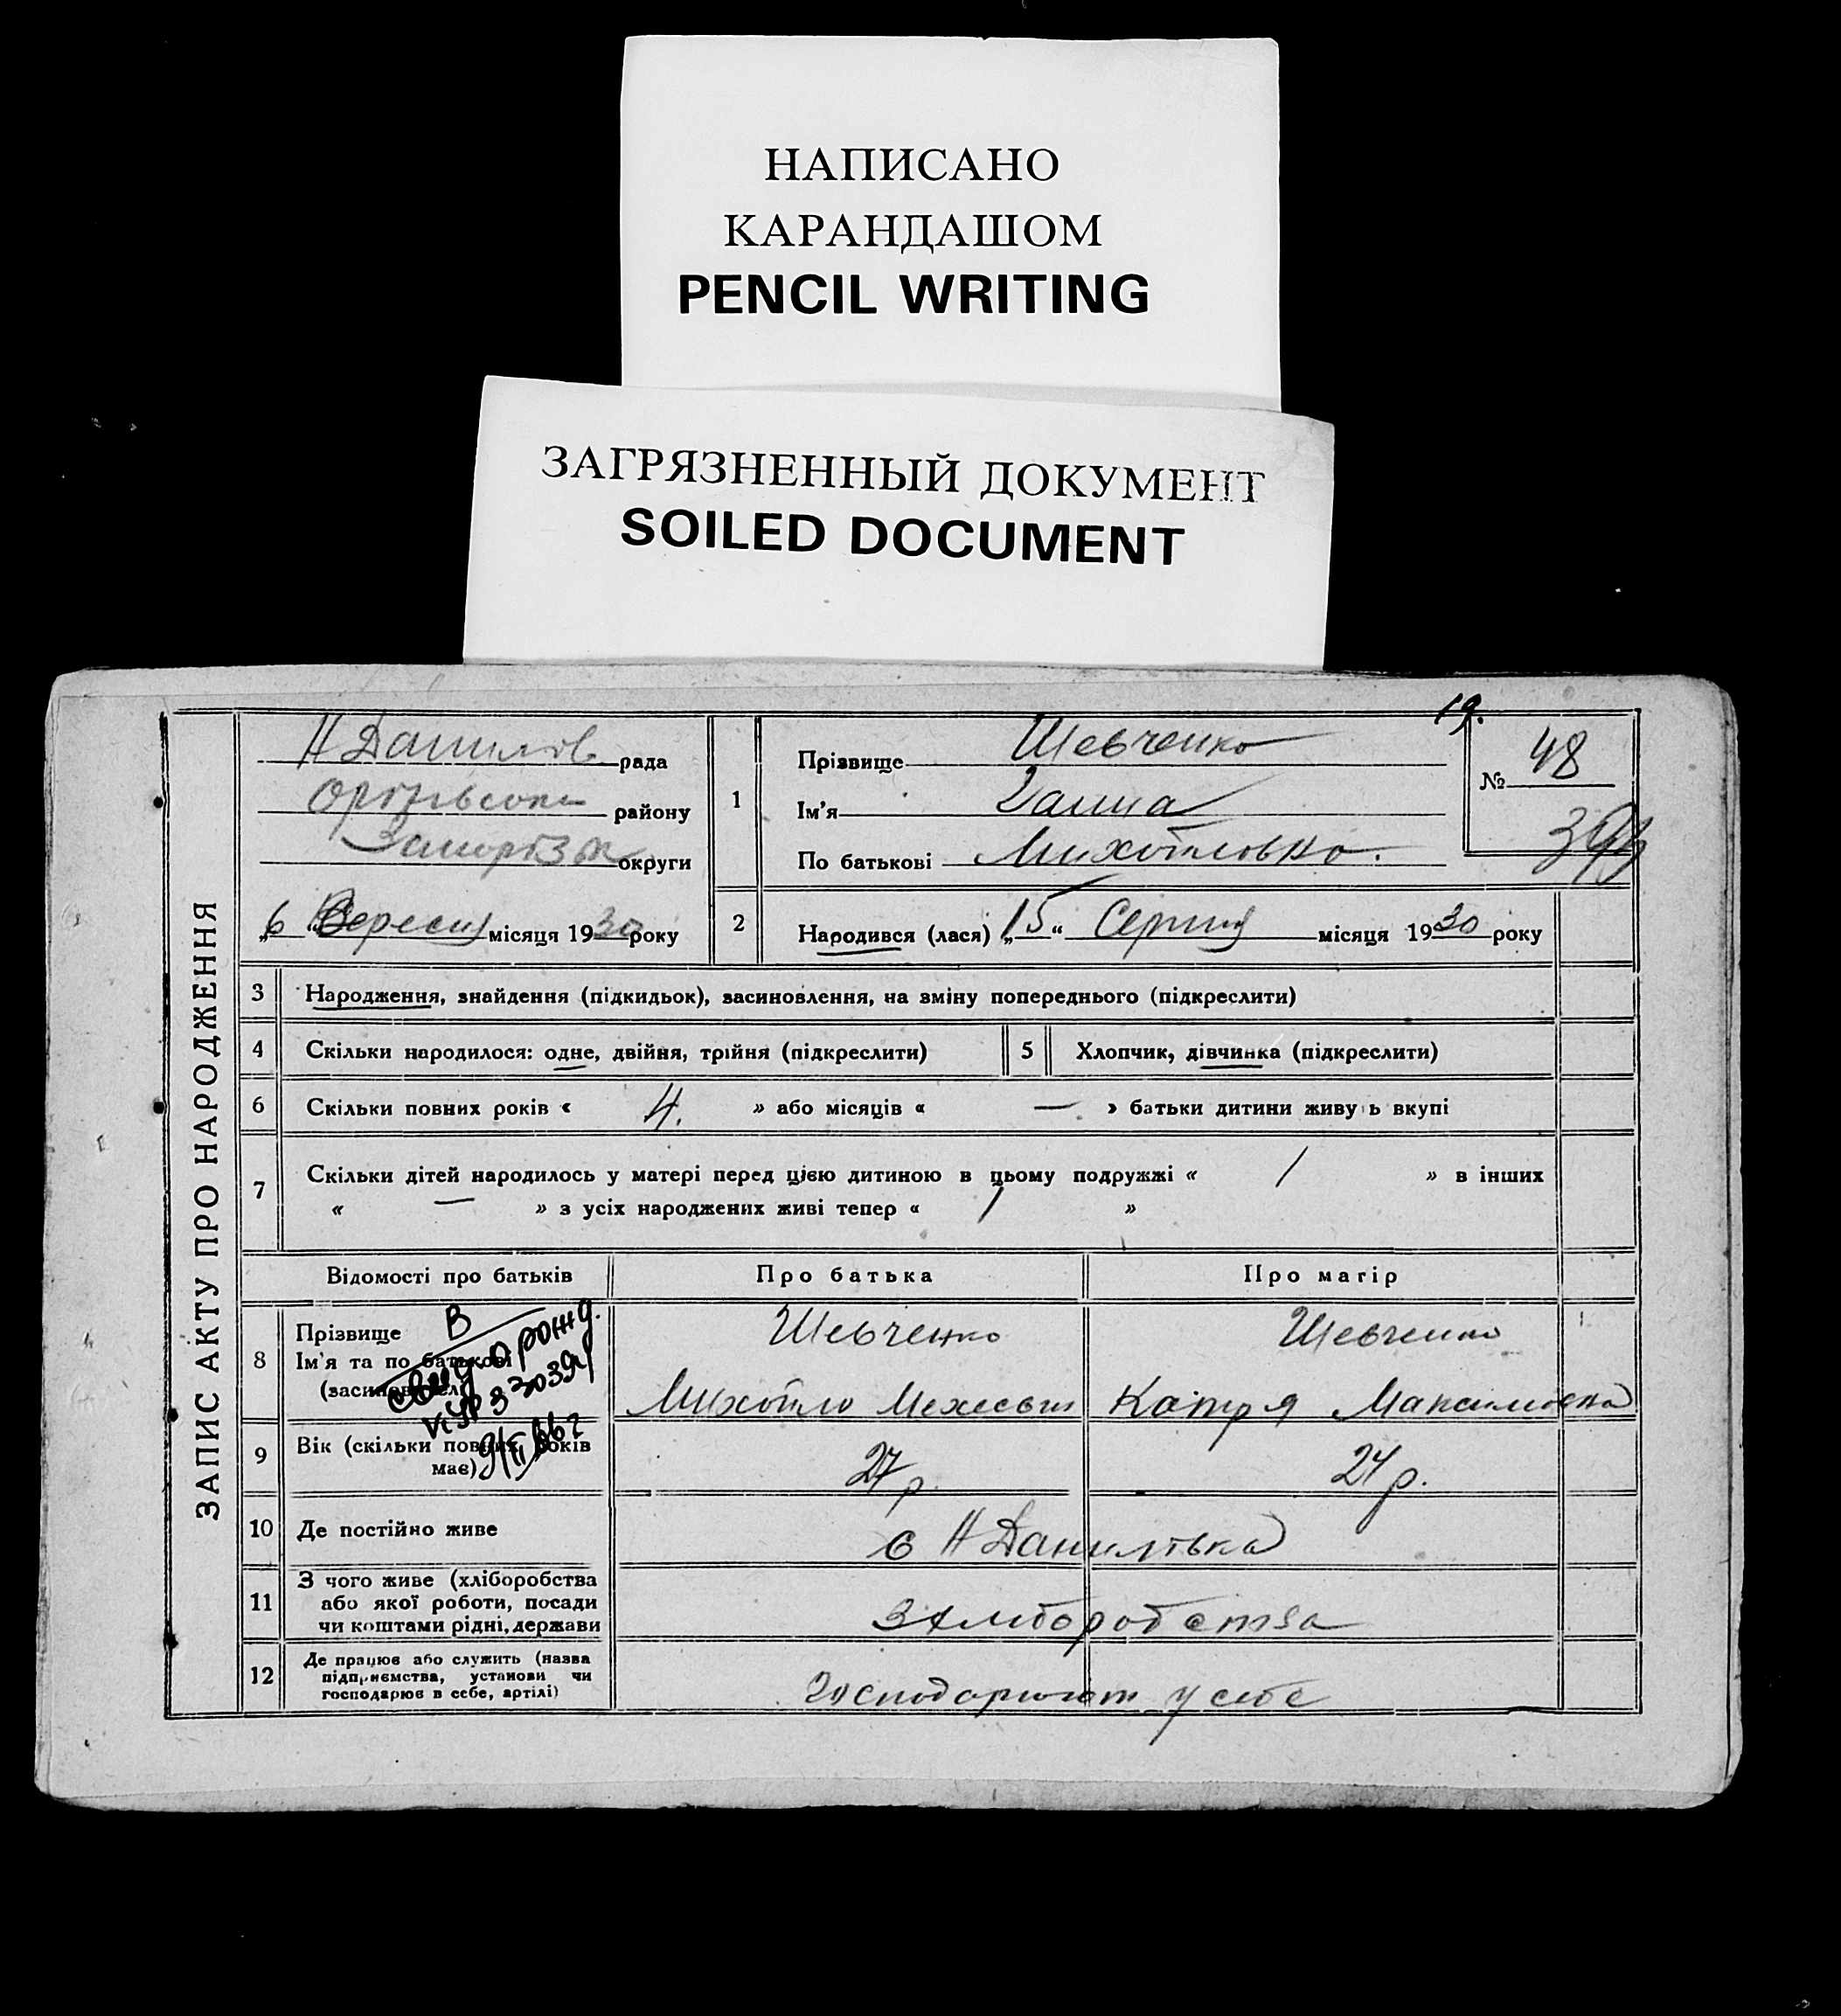 НАПИСАНО
КАРАНДАШОМ
PENCIL WRITING
ЗАГРЯЗНЕННЫЙ ДОКУМЕНТ
SOILED DOCUMENT
19.
ЗАПИС АКТУ ПРО НАРОДЖЕННЯ
Н Данилів рада
району
округи
„6 Вересня місяця 1930 року
1
Прізвище Шевченко
Ім'я Ганна
По батькові Михайловна.
№ 48
2
Народився (лася) „15“ Серпня місяця 1930 року
3 Народження, знайдення (підкидьок), засиновлення, на зміну попереднього (підкреслити)
4 Скільки народилося: одне, двійня, трійня (підкреслити)
5 Хлопчик, дівчинка (підкреслити)
6 Скільки повних років « 4. » або місяців « — » батьки дитини живуть вкупі
7 Скільки дітей народилось у матері перед цією дитиною в цьому подружжі « 1 » в інших
« — » з усіх народжених живі тепер « 1 »
Відомості про батьків Про батька Про матір
8 Прізвище Шевченко Шевченко
Ім'я та по батькові
Михайло Катря Максимовна
В
9 Вік (скільки повних років
має) 27 р. 24 р.
10 Де постійно живе с Н Данилівка
11 З чого живе (хліборобства
або якої роботи, посади
чи коштами рідні, держави
З хліборобства
12 Де працює або служить (назва
підприємства, установи чи
господарює в себе, артілі)
Господарюют у себе